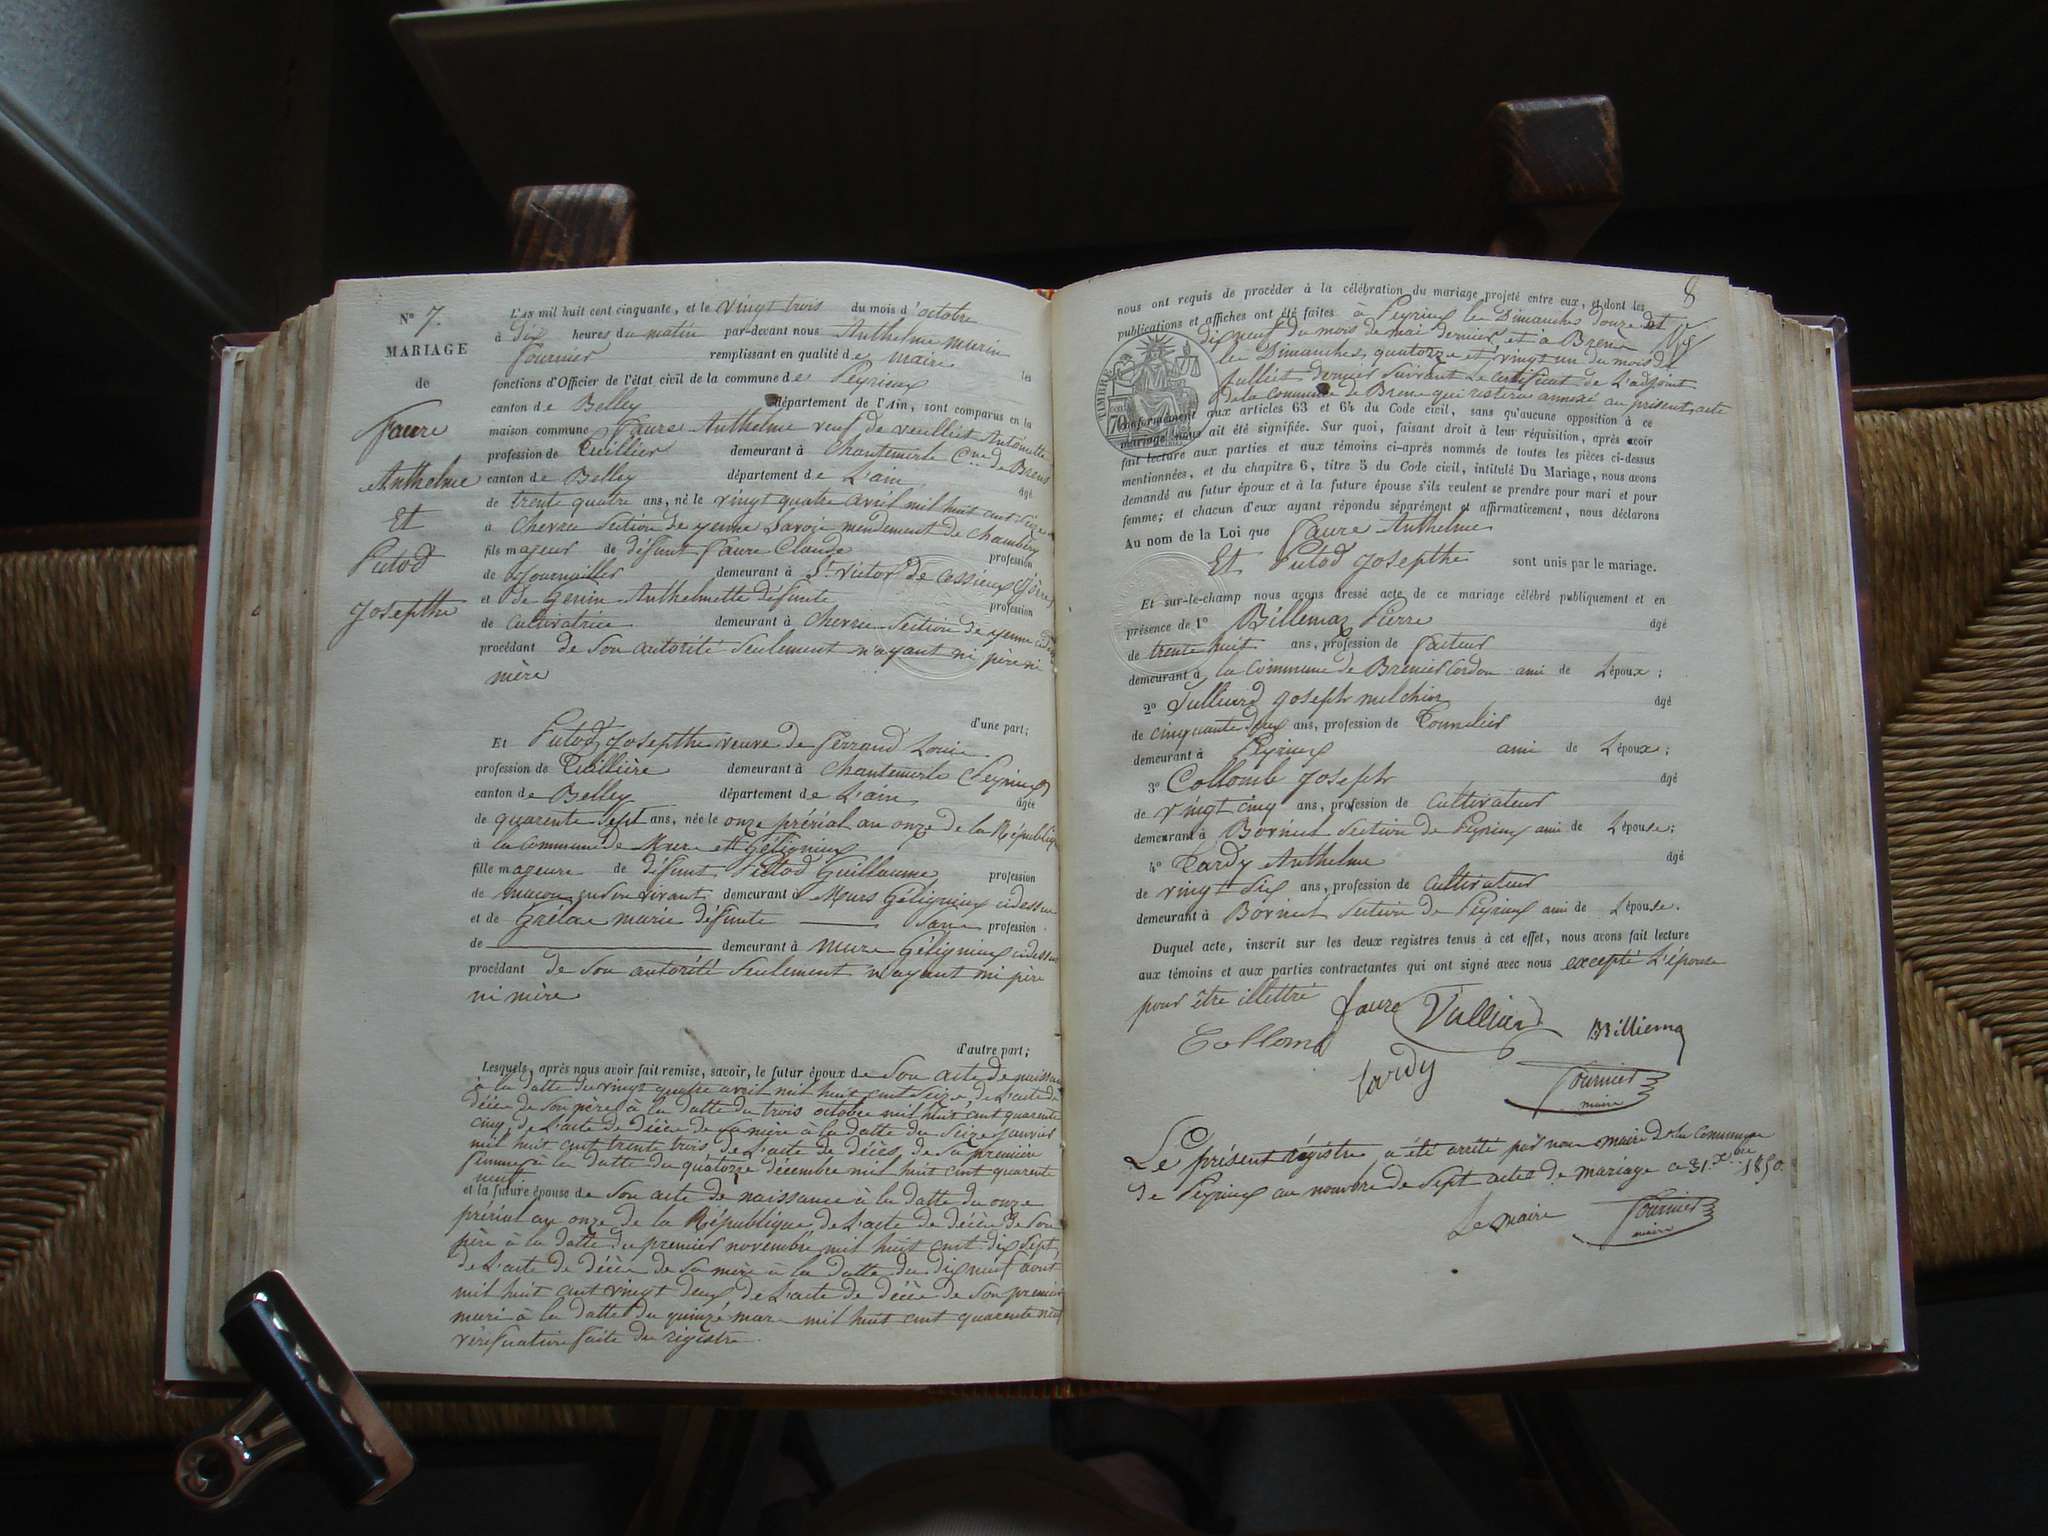 N° 7.
MARIAGE
de
Faure
Anthelme
Et
Putod
Josepthe
L'an mil huit cent cinquante, et le vingt trois du mois d'octobre
à dix heures du matin par-devant nous Anthelme
Fournier remplissant en qualité de maire les
fonctions d'Officier de l'état civil de la commune de Peyrieux
canton de Belley département de l'Ain, sont comparus en la
maison commune Faure Anthelme veuf de veulliet Antoinette
profession de Tuillier demeurant à Chantemerle Cne de Brens
canton de Belley département de L'ain âgé
de trente quatre ans, né le vingt quatre avril mil huit cent seize
à Chevru Section de yenne Savoie mendement de Chambéry
fils majeur de défunt Faure Claude profession
de demeurant à St victor de Cessieux (Isère)
et de Genin Anthelmette défunte profession
de Cultivatrice demeurant à Chevru Section de yenne
procédant de Son autorité Seulement n'ayant ni père ni
mère
d'une part;
Et Putod Josepthe veuve de Perraud Louis
profession de Tuillière demeurant à Chantemerle Peyrieux
canton de Belley département de L'ain âgée
de quarente Sept ans, née le onze prérial an onze de la République
à la Commune de Murs et Gélignieux
fille majeure de défunt Putod Guillaume profession
de maçon en son vivant demeurant à Murs Gélignieux cidessus
et de marie défunte Sans profession
de demeurant à Murs Gélignieux cidessus
procédant de Son autorité Seulement n'ayant ni père
ni mère
d'autre part;
Lesquels, après nous avoir fait remise, savoir, le futur époux de Son acte de naissance
à la datte du vingt quatre avril mil huit cent Seize de L'acte de
décès de Son père à la datte du trois octobre mil huit cent quarente
cinq de L'acte de décès de Sa mère à la datte du Seize janvier
mil huit cent trente trois de L'acte de décès de Sa première
femme à la datte du quatorze décembre mil huit cent quarente
neuf.
et la future épouse de Son acte de naissance à la datte du onze
prérial an onze de la République de L'acte de décès de Son
père à la datte du premier novembre mil huit cent dix Sept
de L'acte de décès de Sa mère à la datte du dix neuf août
mil huit cent vingt deux de L'acte de décès de Son premier
mari à la datte du quinze mars mil huit cent quarente neuf
vérification faite du registre.
8
nous ont requis de procéder à la célébration du mariage projeté entre eux, et dont les
publications et affiches ont été faites à Peyrieux les Dimanches douze et
dix neuf du mois de mai dernier et à Brens
les Dimanches quatorze et vingt un du mois de
Julliet dernier Suivant Le certificat de L'adjoint
de la Commune de Brens qui restera annexé au présent acte
TIMBRE
70
conformément aux articles 63 et 64 du Code civil, sans qu'aucune opposition à ce
mariage nous ait été signifiée. Sur quoi, faisant droit à leur réquisition, après avoir
fait lecture aux parties et aux témoins ci-après nommés de toutes les pièces ci-dessus
mentionnées, et du chapitre 6, titre 5 du Code civil, intitulé Du Mariage, nous avons
demandé au futur époux et à la future épouse s'ils veulent se prendre pour mari et pour
femme; et chacun d'eux ayant répondu séparément et affirmativement, nous déclarons
Au nom de la Loi que Faure Anthelme
Et Putod Josepthe sont unis par le mariage.
Et sur-le-champ nous avons dressé acte de ce mariage célébré publiquement et en
présence de 1° Billemaz Pierre âgé
de trente huit ans, profession de facteur
demeurant à la Commune de Brénier Cordon ami de L'époux;
2° Joseph melchior âgé
de cinquante deux ans, profession de Tonnelier
demeurant à Peyrieux ami de L'époux;
3° Collomb Joseph âgé
de vingt cinq ans, profession de Cultivateur
demeurant à Borinet Section de Peyrieux ami de L'épouse;
4° Tardy Anthelme âgé
de vingt Six ans, profession de Cultivateur
demeurant à Borinet Section de Peyrieux ami de L'épouse.
Duquel acte, inscrit sur les deux registres tenus à cet effet, nous avons fait lecture
aux témoins et aux parties contractantes qui ont signé avec nous excepté L'épouse
pour être illettré
Faure
Collomb
Tardy
Fournier
maire
Le présent registre a été arrêté par nous maire de la Commune
de Peyrieux au nombre de Sept actes de mariage ce 31 Xbre 1850.
Le maire Fournier
maire